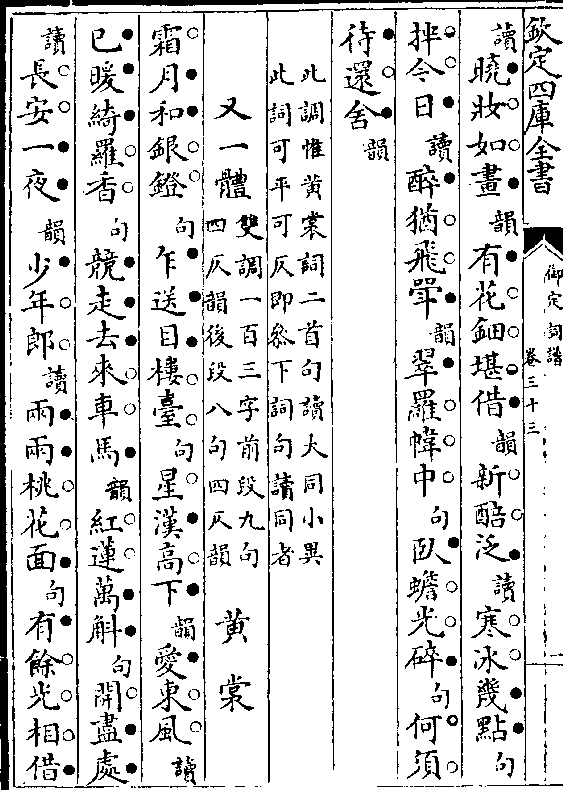 欽定四庫全書
御定詞譜
卷三十三
一
讀曉妝如畫韻有花鈿堪借韻新醅泛讀寒冰幾點句
拌今日讀醉猶飛斝韻翠羅幃中句臥蟾光碎句何須
待還舍韻
此調惟黄裳詞二首句讀大同小異
此詞可平可仄即叅下詞句讀同者
又一體雙調一百三字前段九句
四仄韻後段八句四仄韻
黄裳
霜月和銀鐙句乍送目樓臺句星漢高下韻愛東風讀
已暖綺羅香句競走去來車馬韻紅蓮萬斛句開盡處
讀長安一夜韻少年郎讀兩兩桃花面句有餘光相借